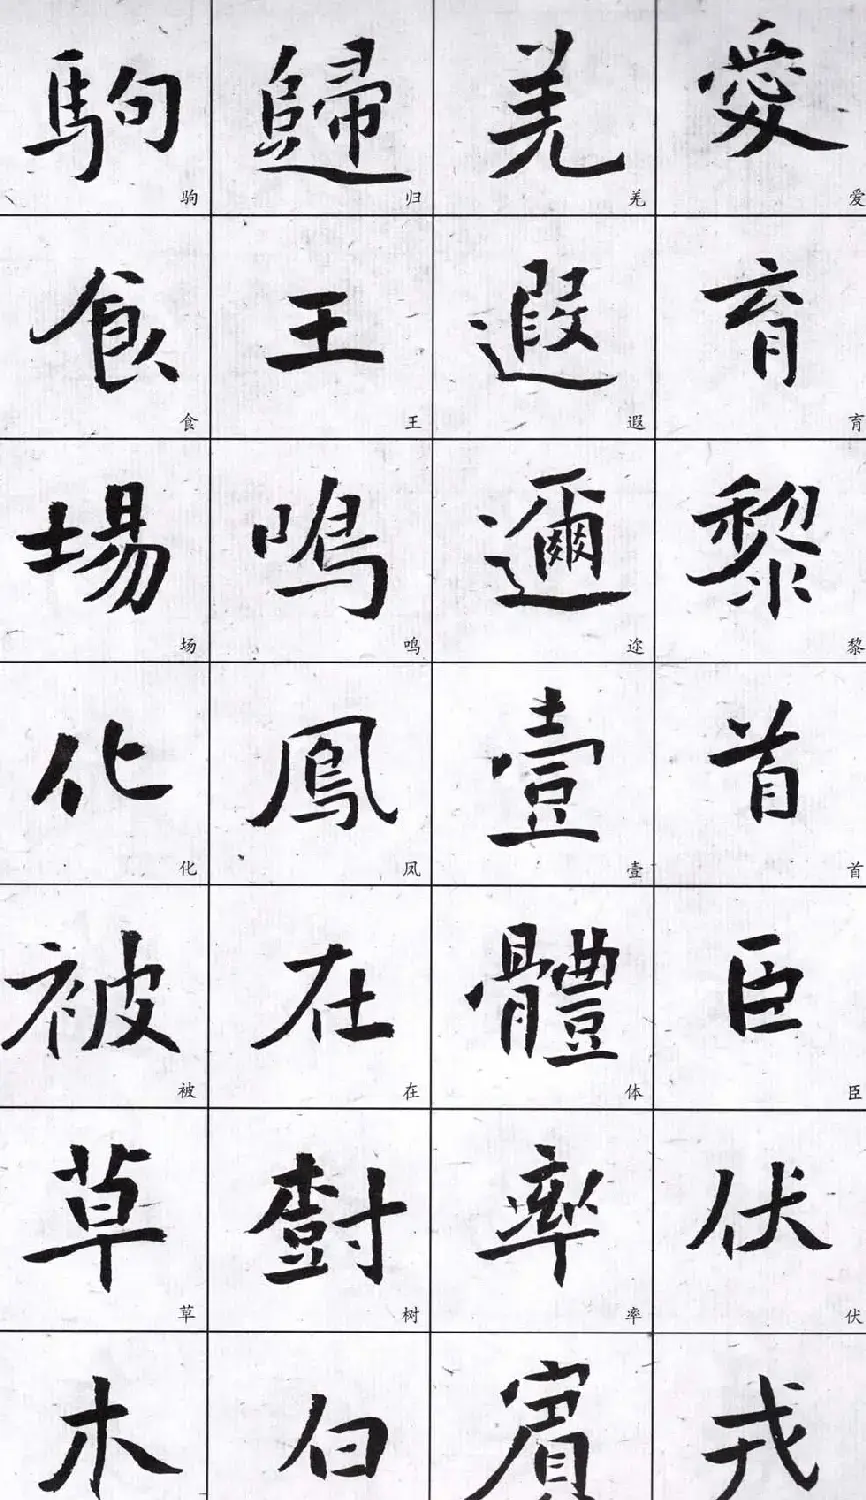 愛育黎首臣伏戎
爱育黎首臣伏
羌遐邇壹體率賓
羌遐迩壹体率
歸王鳴鳳在樹白
归王鸣凤在树
駒食場化被草木
驹食场化被草